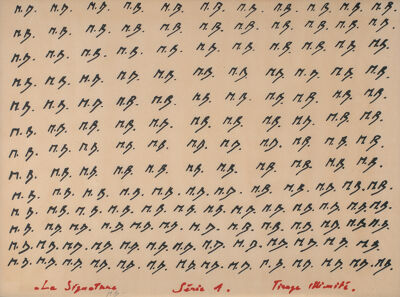 M.B. M.B. M.B. M.B. M.B. M.B. M.B. M.B. M.B. M.B. M.B.
M.B. M.B. M.B. M.B. M.B. M.B. M.B. M.B. M.B. M.B. M.B.
M.B. M.B. M.B. M.B. M.B. M.B. M.B. M.B. M.B. M.B. M.B.
M.B. M.B. M.B. M.B. M.B. M.B. M.B. M.B. M.B. M.B. M.B.
M.B. M.B. M.B. M.B. M.B. M.B. M.B. M.B. M.B. M.B. M.B.
M.B. M.B. M.B. M.B. M.B. M.B. M.B. M.B. M.B. M.B. M.B.
M.B. M.B. M.B. M.B. M.B. M.B. M.B. M.B. M.B. M.B. M.B.
M.B. M.B. M.B. M.B. M.B. M.B. M.B. M.B. M.B. M.B. M.B.
M.B. M.B. M.B. M.B. M.B. M.B. M.B. M.B. M.B. M.B. M.B. M.B. M.B.
M.B. M.B. M.B. M.B. M.B. M.B. M.B. M.B. M.B. M.B. M.B. M.B. M.B. M.B.
M.B. M.B. M.B. M.B. M.B. M.B. M.B. M.B. M.B. M.B. M.B. M.B. M.B. M.B.
M.B. M.B. M.B. M.B. M.B. M.B. M.B. M.B. M.B. M.B. M.B. M.B. M.B. M.B.
M.B. M.B. M.B. M.B. M.B. M.B. M.B. M.B. M.B. M.B. M.B. M.B. M.B. M.B.
La Signature Série 1. Tirage illimité.